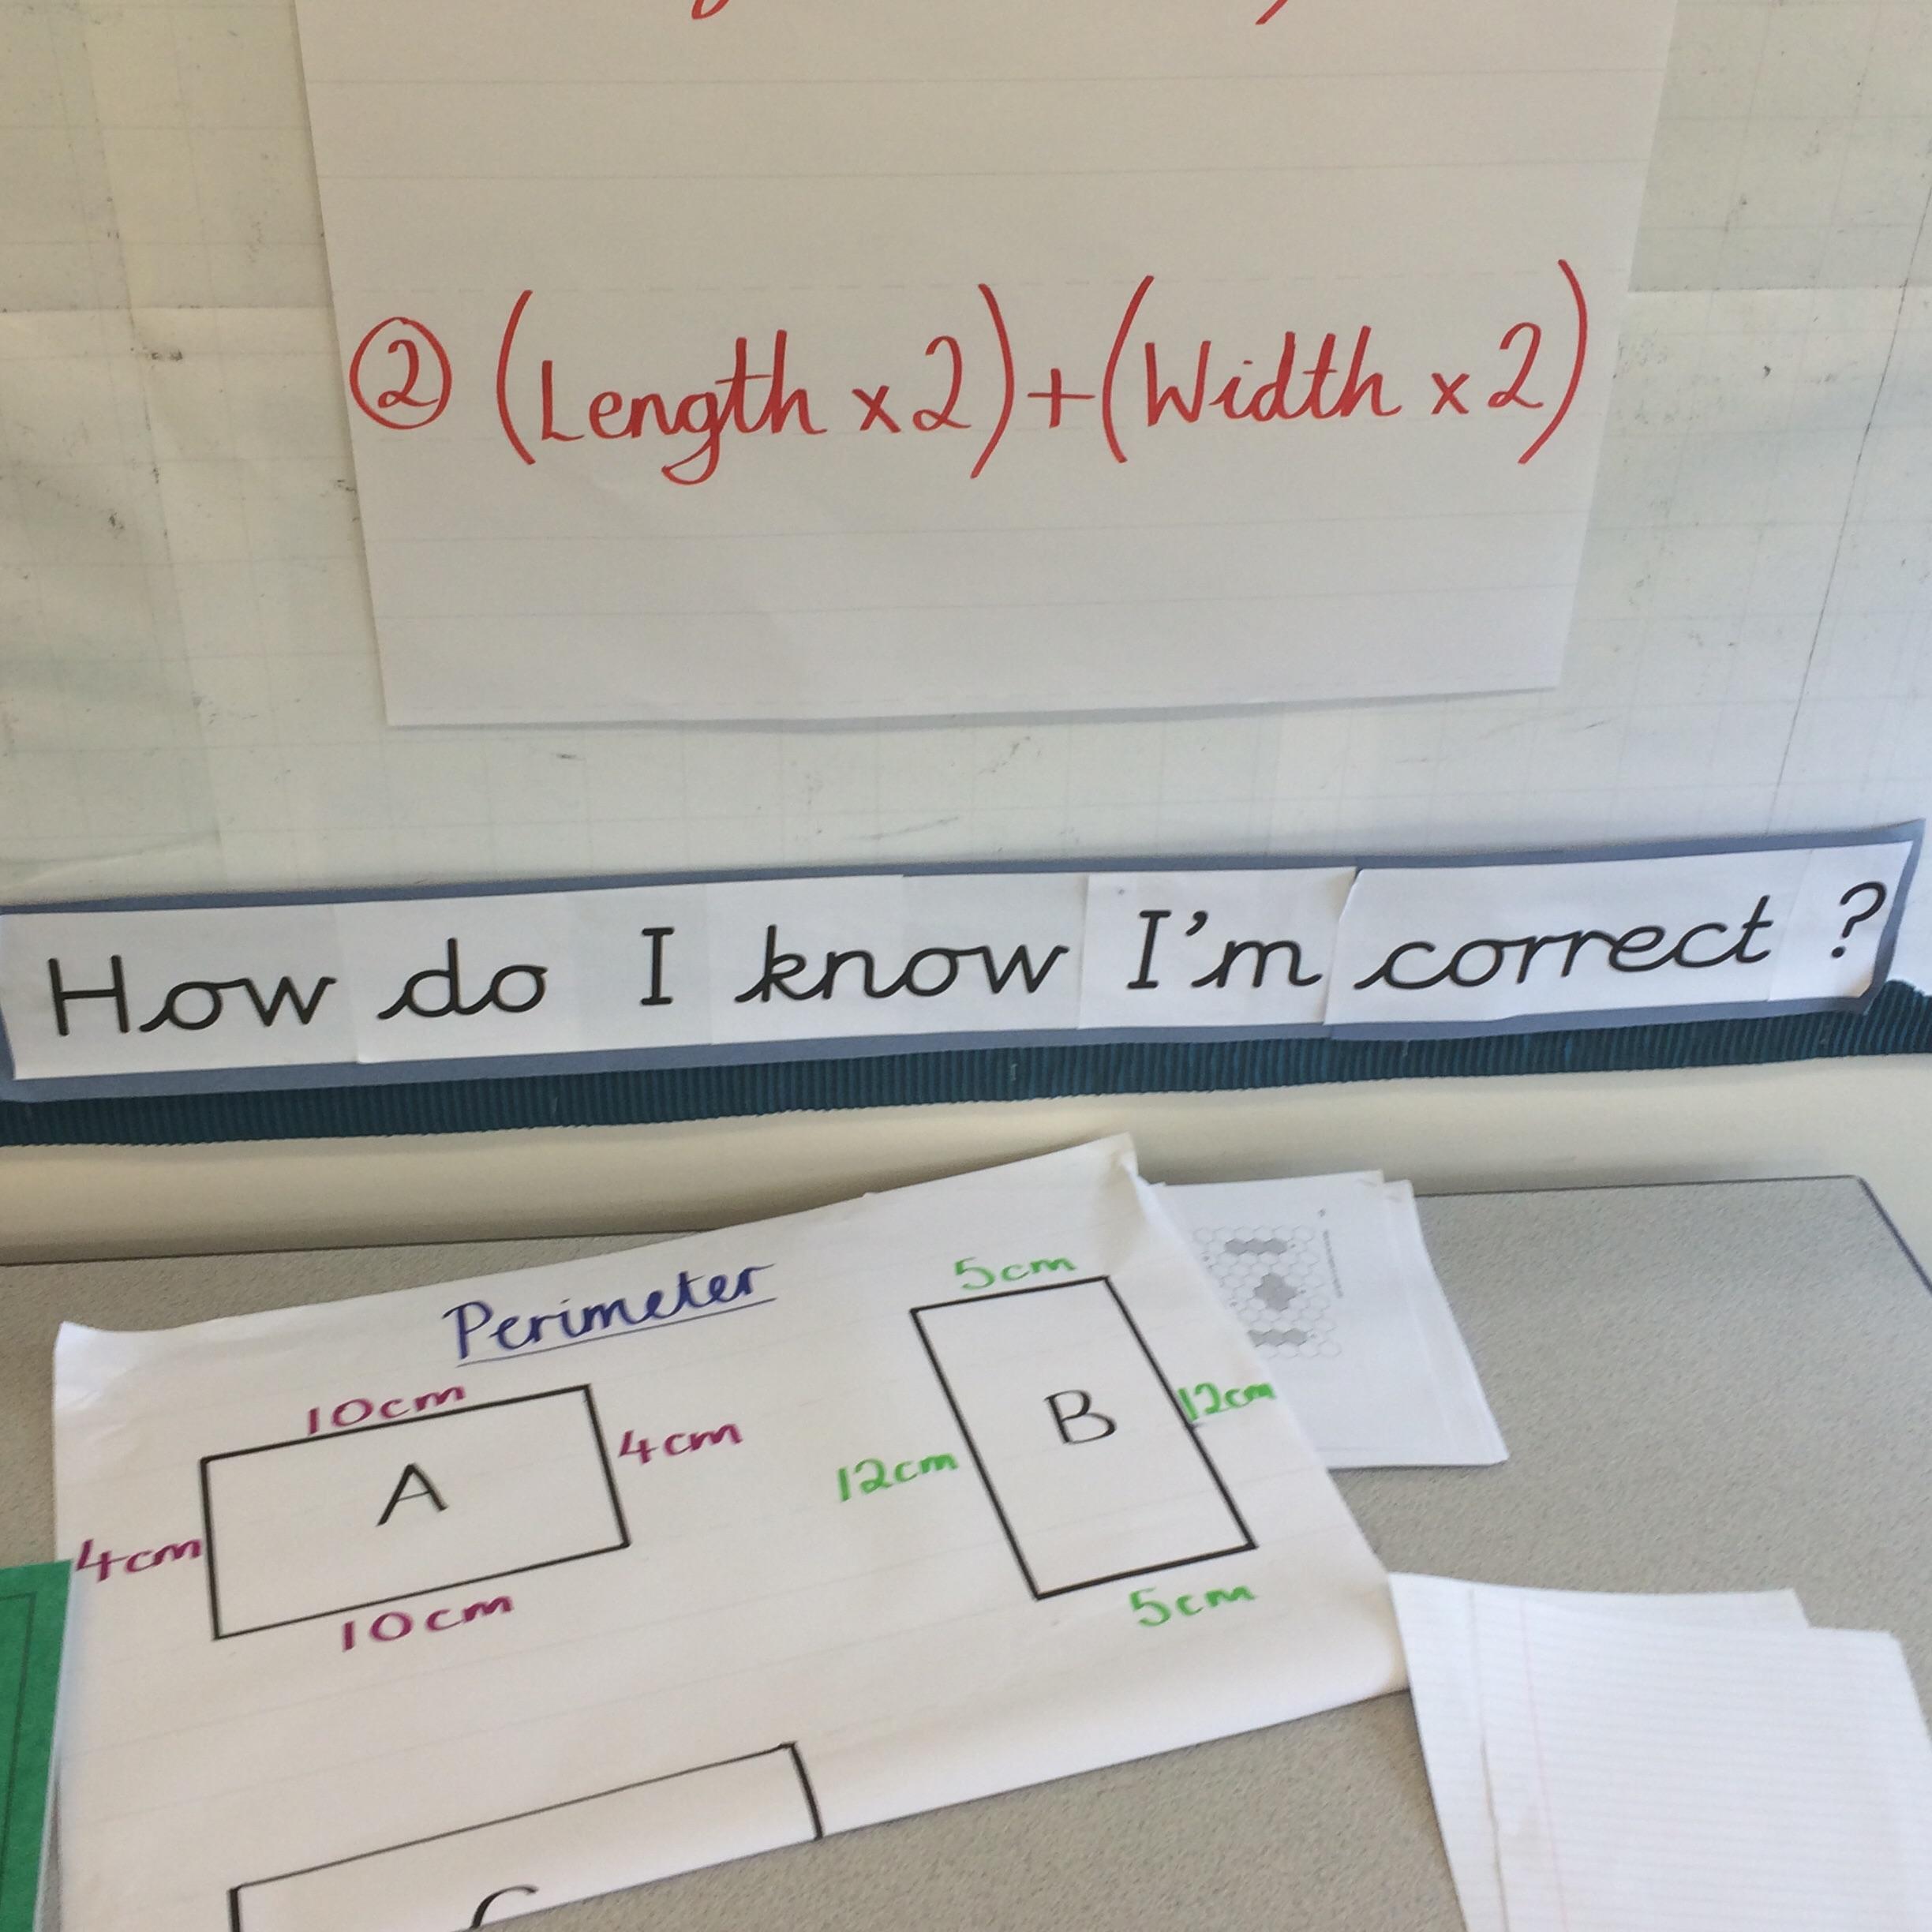 ② (Length x 2) + (Width x 2)
How do I know I'm correct ?
Perimeter
10cm
4cm
A
4cm
10cm
5cm
12cm
B
12cm
5cm
C